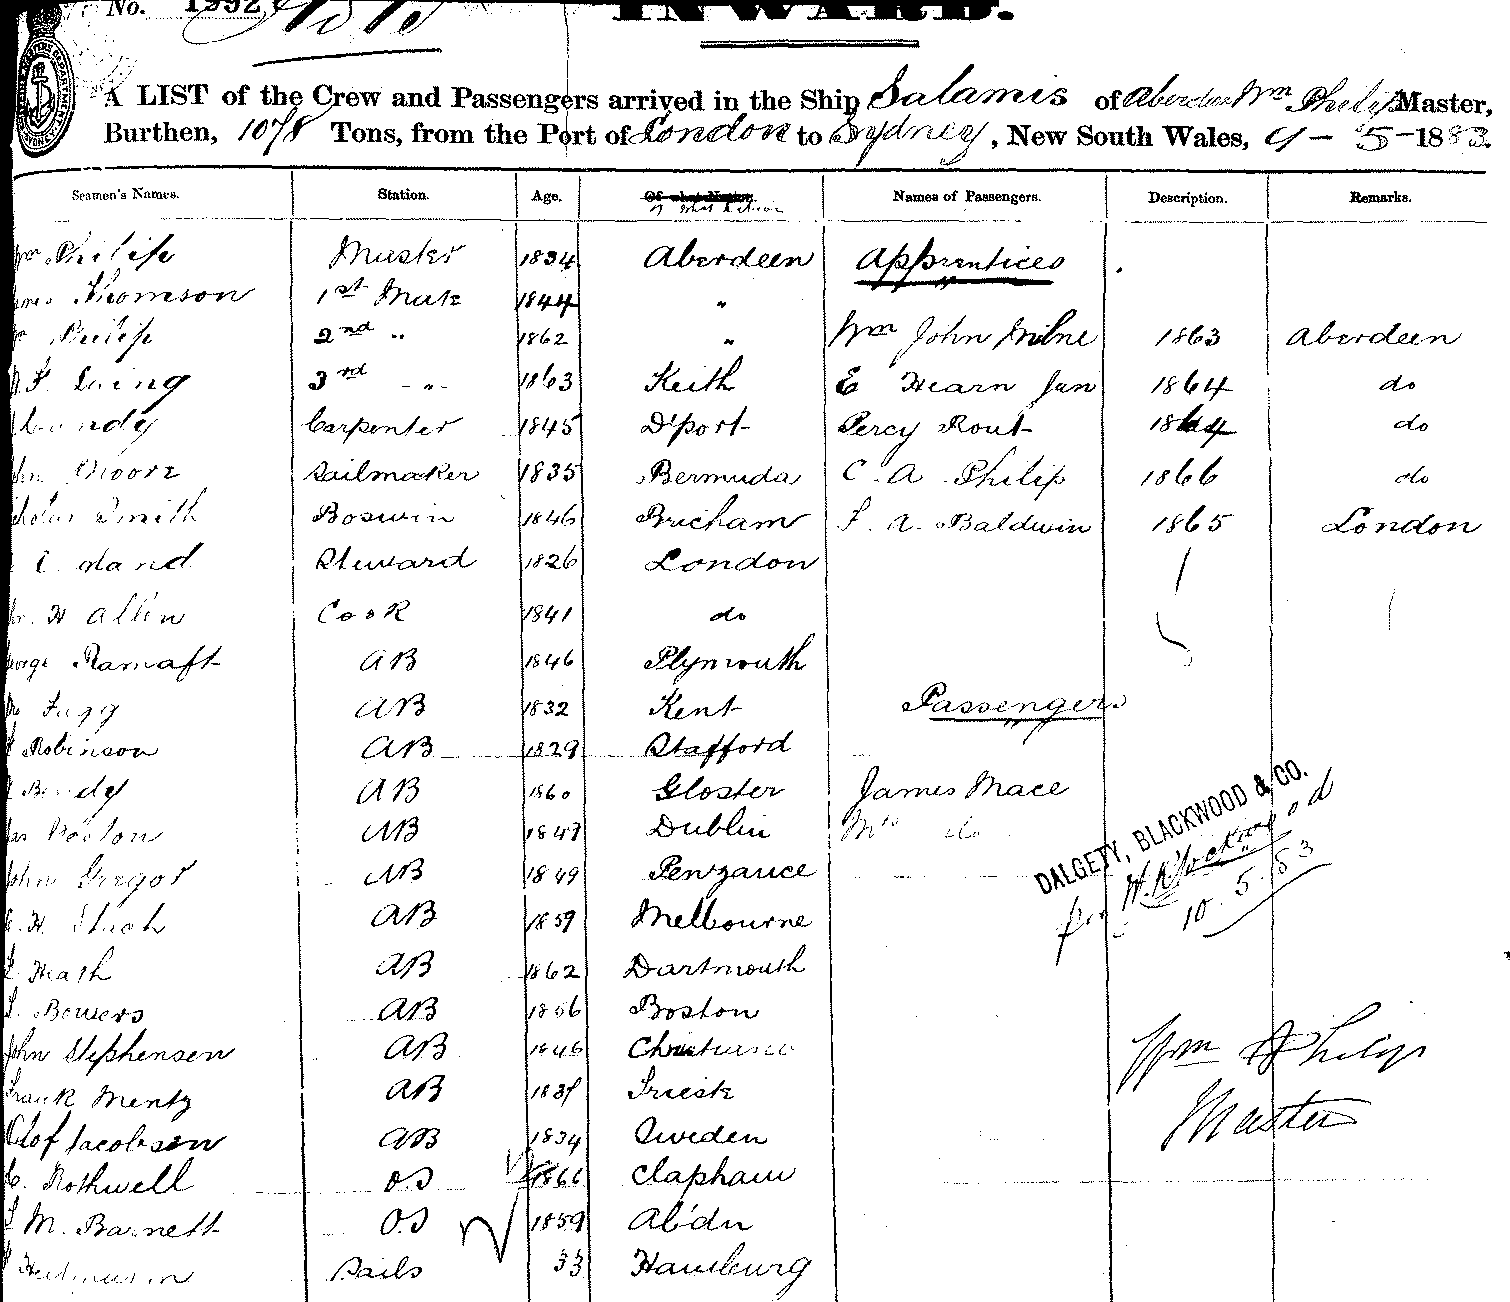 No. 1992
INWARD.
A LIST of the Crew and Passengers arrived in the Ship Salamis of Aberdeen Wm Philip Master,
Burthen, 1078 Tons, from the Port of London to Sydney, New South Wales, 9-5-1883.
Seamen's Names. Station. Age. Of what Nation. Names of Passengers. Description. Remarks.
of what Nation
Wm Philip Master 1834 Aberdeen Apprentices
Thomson 1st Mate 1844 "
Philip 2nd " 1862 " Wm John Milne 1863 Aberdeen
Laing 3rd " 1863 Keith E Hearn Jun 1864 do
Carpenter 1845 D'port Percy Rout 1864 do
Moore Sailmaker 1835 Bermuda C. A. Philip 1866 do
Smith Boswin 1846 Bricham A. Baldwin 1865 London
Steward 1826 London
H Allen Cook 1841 do
George AB 1846 Plymouth
Fagg AB 1832 Kent Passengers
Robinson AB 1829 Stafford
AB 1860 Gloster James Mace
AB 1849 Dublin Mrs do
John Gregor AB 1849 Penzance
H. AB 1859 Melbourne
Heath AB 1862 Dartmouth
Bowers AB 1856 Boston
John Stephensen AB 1846
Frank Mentz AB Triest
Olof Jacobsen AB 1834 Sweden
Rothwell OS 1866 Clapham
M. Barnett OS 1859 Ab'dn
Sails 33 Hamburg
DALGETY, BLACKWOOD & CO.
10.5.83
Wm Philip
Master